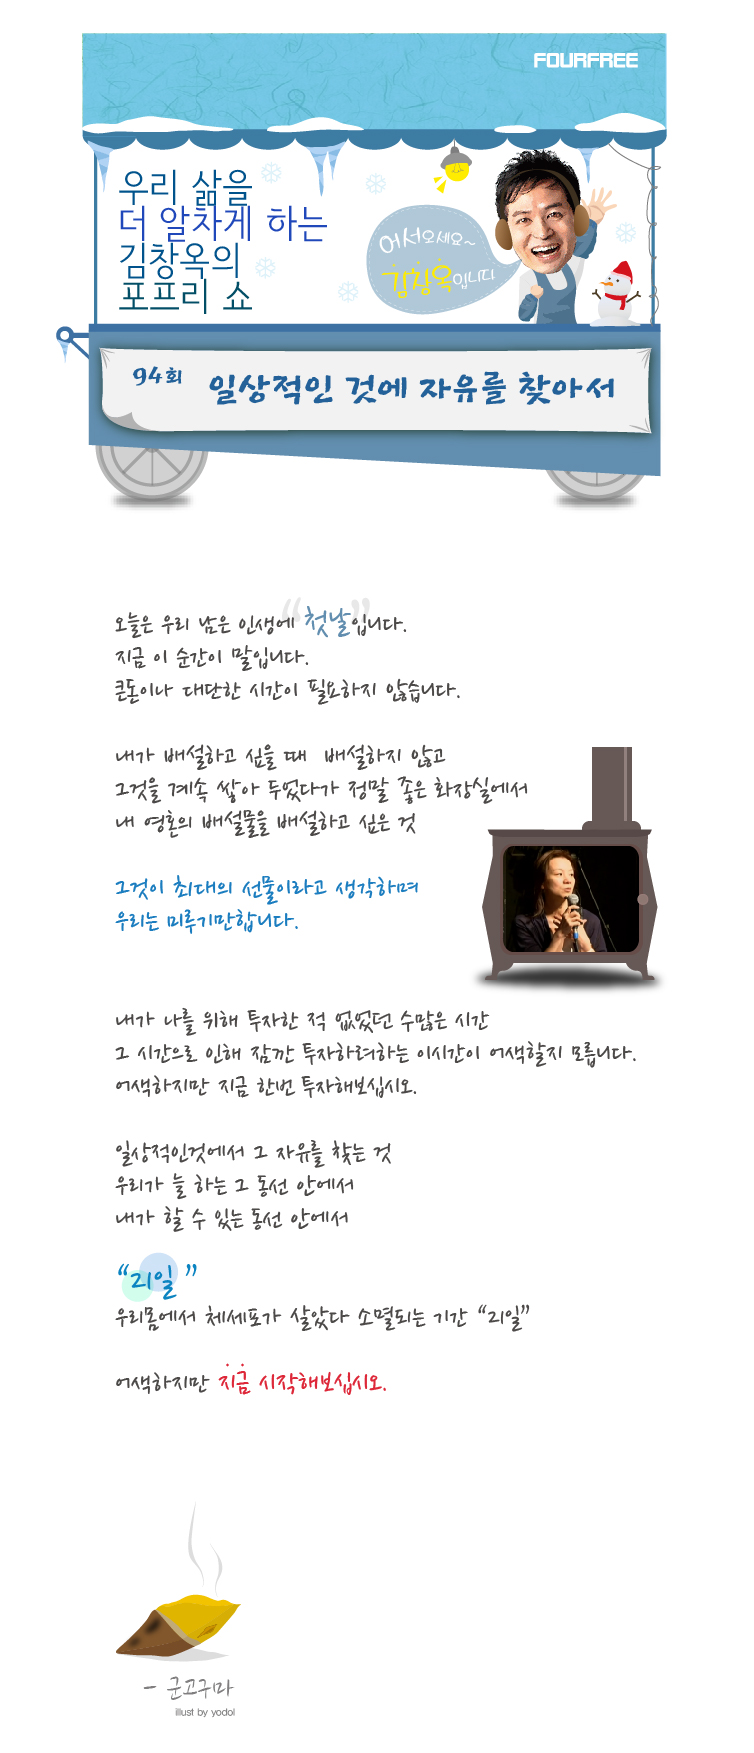 FOURFREE
우리 삶을
더 알차게 하는
김창옥의
포프리 쇼
어서오세요~
김창옥입니다
94회 일상적인 것에 자유를 찾아서
오늘은 우리 남은 인생에 “첫날”입니다.
지금 이 순간이 말입니다.
큰돈이나 대단한 시간이 필요하지 않습니다.
내가 배설하고 싶을 때 배설하지 않고
그것을 계속 쌓아 두었다가 정말 좋은 화장실에서
내 영혼의 배설물을 배설하고 싶은 것
그것이 최대의 선물이라고 생각하며
우리는 미루기만합니다.
내가 나를 위해 투자한 적 없었던 수많은 시간
그 시간으로 인해 잠깐 투자하려하는 이시간이 어색할지 모릅니다.
어색하지만 지금 한번 투자해보십시오.
일상적인것에서 그 자유를 찾는 것
우리가 늘 하는 그 동선 안에서
내가 할 수 있는 동선 안에서
“21일”
우리몸에서 체세포가 살았다 소멸되는 기간 “21일”
어색하지만 지금 시작해보십시오.
- 군고구마
illust by yodol